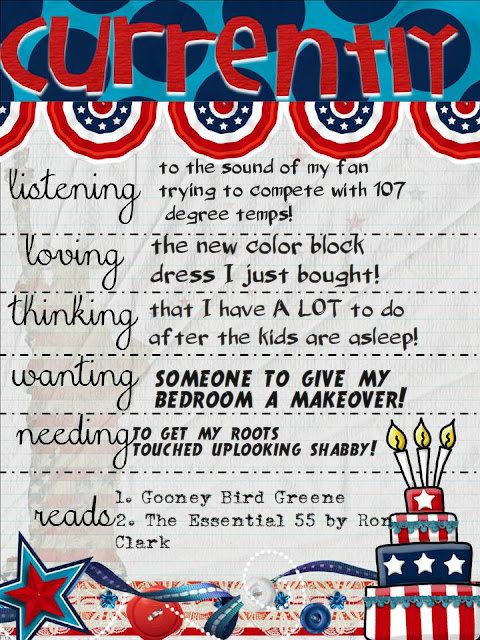 currently
listening
to the sound of my fan
trying to compete with 107
degree temps!
loving
the new color block
dress I just bought!
thinking
that I have A LOT to do
after the kids are asleep!
wanting
SOMEONE TO GIVE MY
BEDROOM A MAKEOVER!
needing
TO GET MY ROOTS
TOUCHED UPLOOKING SHABBY!
reads
1. Gooney Bird Greene
2. The Essential 55 by Ron
Clark